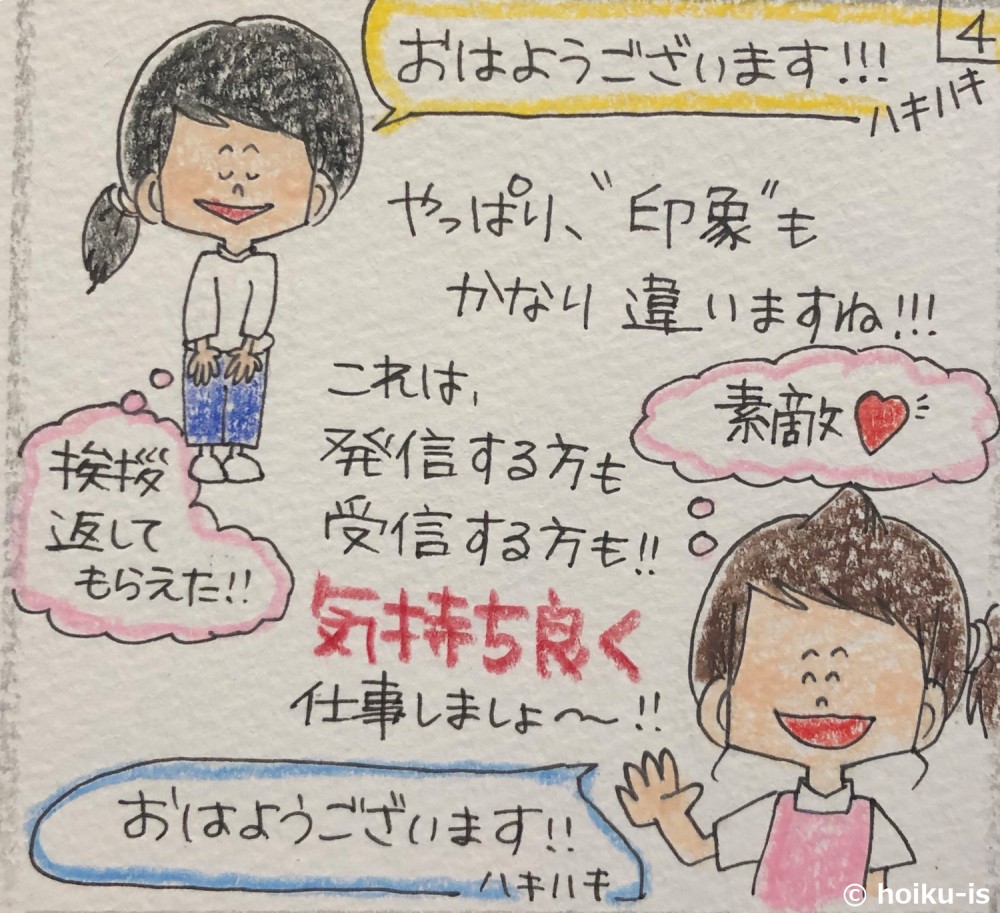 4
おはようございます!!!
ハキハキ
やっぱり、"印象"も
かなり違いますね!!!
これは、
発信する方も
受信する方も!!
気持ち良く
仕事しましょ〜!!
挨拶
返して
もらえた!!
素敵
おはようございます!!
ハキハキ
© hoiku-is